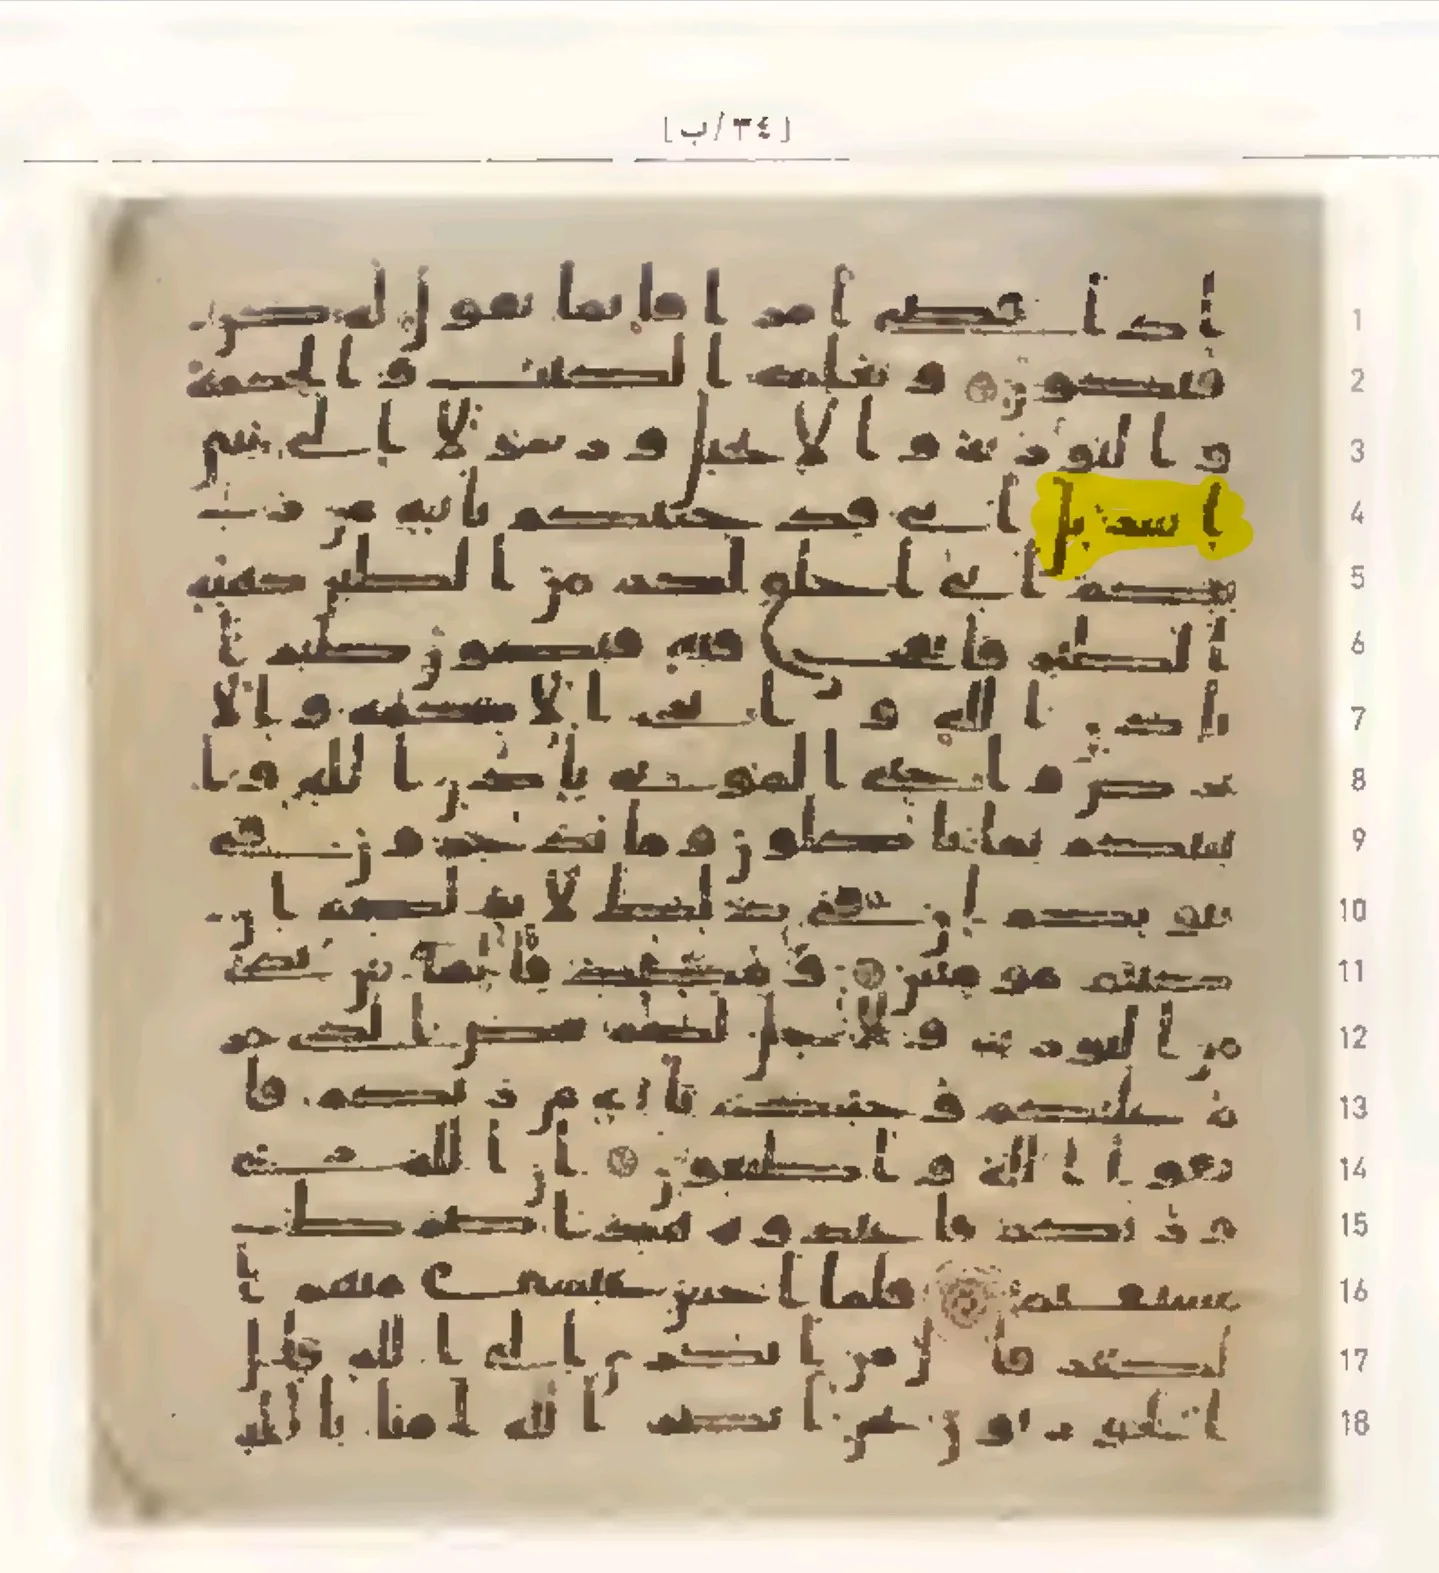 [٣٤/ب]
اذا قضى امرا فانما يقول له كن
فيكون و يعلمه الكتب و الحكمة
و التورية و الانجيل و رسولا الى بني
اسريل اني قد جئتكم باية من ر
بكم اني اخلق لكم من الطين كهية
الطير فانفخ فيه فيكون طيرا
باذن الله و ابرى الاكمه و الا
برص و احي الموتى باذن الله و ا
نبيكم بما تاكلون و ما تدخرون في
بيوتكم ان في ذلك لاية لكم ان
كنتم مومنين و مصدقا لما بين يدي
من التورية و لاحل لكم بعض الذي حر
م عليكم و جئتكم باية من ربكم فا
تقوا الله و اطيعون ان الله ربي
و ربكم فاعبدوه هذا صرط
مستقيم فلما احس عيسى منهم ا
لكفر قال من انصاري الى الله قال
الحواريون نحن انصار الله امنا بالله
1
2
3
4
5
6
7
8
9
10
11
12
13
14
15
16
17
18